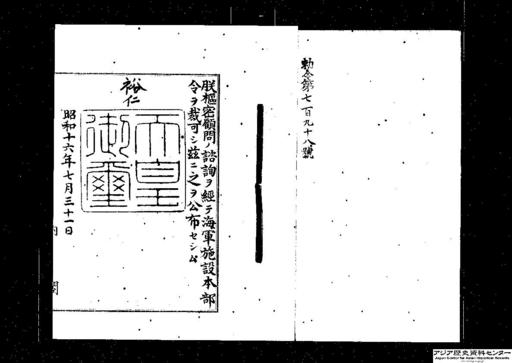 勅令第七百九十八號
朕樞密顧問ノ諮詢ヲ經テ海軍施設本部
令ヲ裁可シ茲ニ之ヲ公布セシム
裕仁
天皇
御璽
昭和十六年七月三十一日
内閣
アジア歴史資料センター
Japan Center for Asian Historical Records